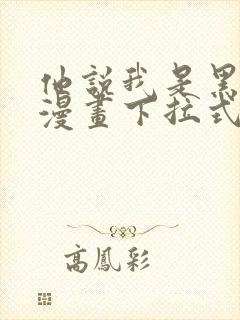 他說我是黑
漫畫下拉式
高鳳彩